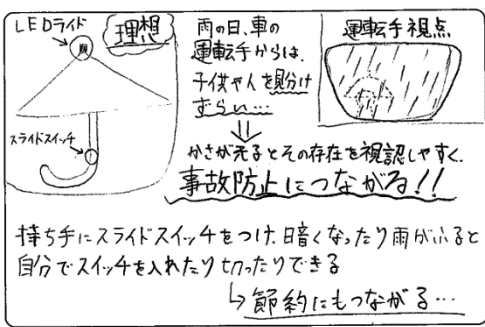 LEDライド
理想
スライドスイッチ
雨の日、車の
運転手からは、
子供や人を見分け
ずらい…
運転手視点
かさが光るとその存在を視認しやすく、
事故防止につながる!!
持ち手にスライドスイッチをつけ、暗くなったり雨がふると
自分でスイッチを入れたり切ったりできる
↳節約にもつながる…